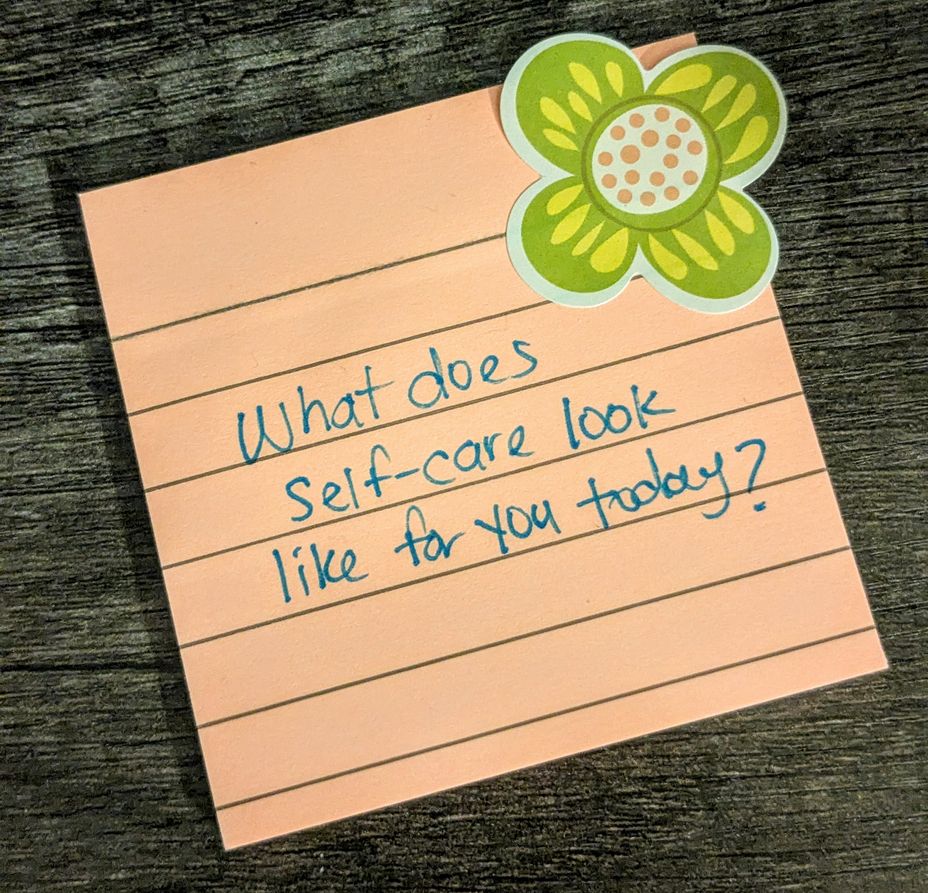 What does
self-care look
like for you today?